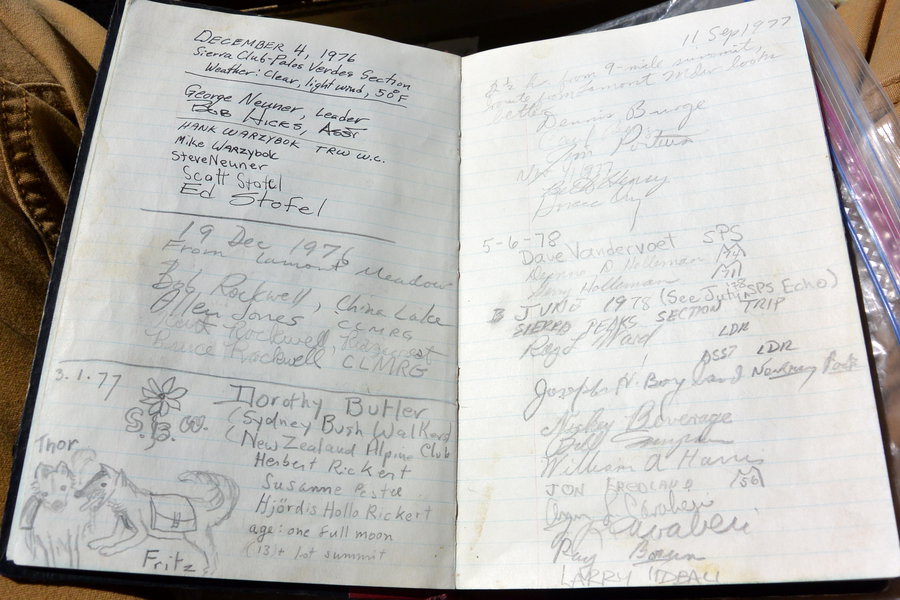 DECEMBER 4, 1976
Sierra Club-Palos Verdes Section
Weather: Clear, light wind, 50°F
George Neuner, Leader
Bob Hicks, Asst
HANK WARZYBOK TRW W.C.
Mike WARZYBOK
Steve Neuner
Scott Stofel
Ed Stofel
19 Dec 1976
From Lamont Meadow
Bob Rockwell, China Lake
Allen Jones, CLMRG
Rockwell
Bruce Rockwell, CLMRG
3.1.77
S.B.W.
Dorothy Butler
(Sydney Bush Walkers
(New Zealand Alpine Club
Herbert Rickert
Susanne
Hjördis Holla Rickert
age: one full moon
(13) + 1st summit
Thor
Fritz
11 Sep 1977
2 1/2 hr from 9-mile summit,
route from Lamont Mdw looks
better
Dennis Burge
Carl
Jim
Nov 1977
5-6-78
Dave Vandervoet SPS
Dennis D. Holleman
Holleman
JUNE 1978 (See SPS Echo)
SIERRA PEAKS SECTION TRIP
Ray L Ward LDR
ASST LDR
Joseph H. Boy
Mickey Beverage
Bill
William A Harris
JON FREDLAND
Ray
LARRY TIDBALL